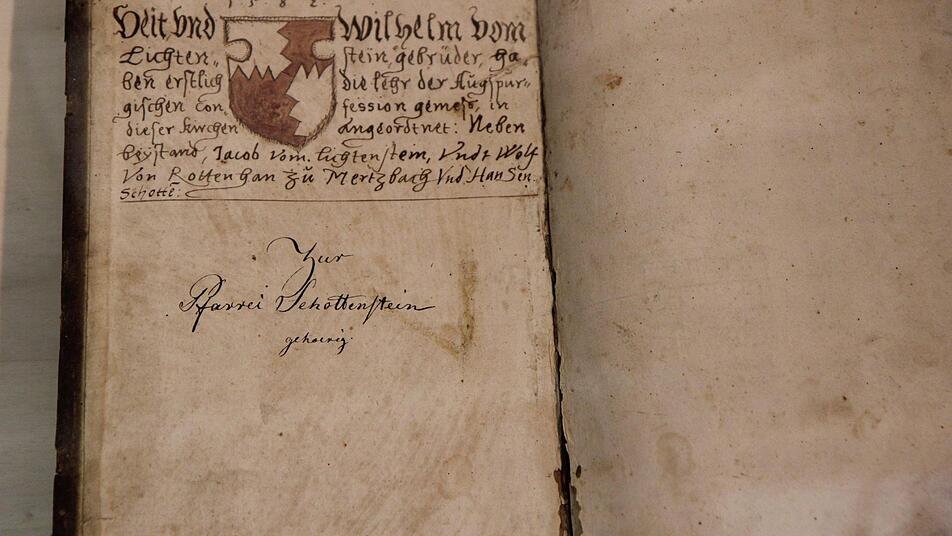 1582.
Veit, Vnd Wilhelm vom
Lichten„ stein, gebrüder, ha„
ben erstlich die lehr der Augspur„
gischen Con„ fession gemeß, in
dieser kirchen angeordtnet: Neben
beystand, Jacob vom lichtenstein, Vndt Wolf
Von Rottenhan zů Mertzbach Vnd Hansen
Schotte:
Zur
Pfarrei Schottenstein
gehoirig.